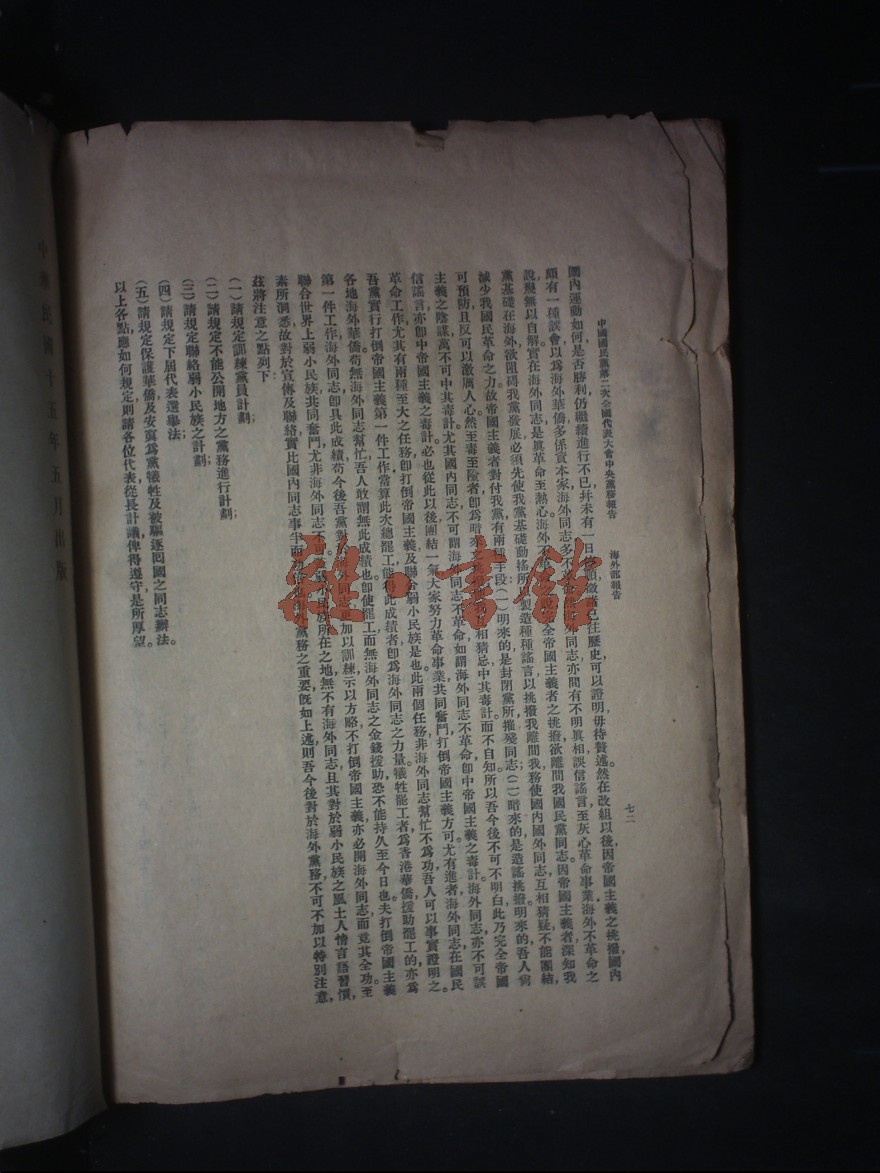 中國國民黨第二次全國代表大會中央黨務報告 海外部報告 七二
團內運動如何是否勝利仍繼續進行不已幷未有一日 徵諸已往歷史可以證明毋待贅述。然在改組以後因帝國主義之挑撥國內
頗有一種誤會以爲海外華僑多係資本家海外同志多不 海外同志亦間有不明眞相誤信謠言至灰心革命事業海外不革命之
說幾無以自解實在海外同志是眞革命至熱心海外不革 全帝國主義者之挑撥欲離間我國民黨同志。因帝國主義者深知我
黨基礎在海外欲阻碍我黨發展必須先使我黨基礎動搖所 製造種種謠言以挑撥我離間我務使國內國外同志互相猜疑不能團結,
減少我國民革命之力故帝國主義者對付我黨有兩種手段:(一)明來的是封閉黨所摧殘同志;(二)暗來的是造謠挑撥。明來的吾人尚
可預防且反可以激厲人心然至毒至陰者卽爲暗來之 互相猜忌中其毒計而不自知所以吾今後不可不明白此乃完全帝國
主義之陰謀萬不可中其毒計尤其國內同志不可謂海外同志不革命如謂海外同志不革命卽中帝國主義之毒計海外同志亦不可誤
信謠言亦卽中帝國主義之毒計必也從此以後團結一氣大家努力革命事業共同奮鬥打倒帝國主義方可尤有進者海外同志在國民
革命工作尤其有兩種至大之任務卽打倒帝國主義及聯合弱小民族是也此兩個任務非海外同志幫忙不爲功吾人可以事實證明之。
吾黨實行打倒帝國主義第一件工作當算此次大總罷工能得此成績者卽爲海外同志之力量犧牲罷工者爲香港華僑援助罷工的亦爲
各地海外華僑苟無海外同志幫忙吾人敢謂無此成績也卽使罷工而無海外同志之金錢援助恐不能持久至今日也夫打倒帝國主義
第一件工作海外同志卽具此成績苟今後吾黨對於海外同志 加以訓練示以方略不打倒帝國主義亦必開海外同志而竟其全功至
聯合世界上弱小民族共同奮鬥尤非海外同志不可 民族所在之地無不有海外同志且其對於弱小民族之風土人情言語習慣,
素所洞悉故對於宣傳及聯絡實比國內同志事半而 黨務之重要旣如上述則吾今後對於海外黨務不可不加以特別注意,
茲將注意之點列下:
(一)請規定訓練黨員計劃;
(二)請規定不能公開地方之黨務進行計劃;
(三)請規定聯絡弱小民族之計劃;
(四)請規定下屆代表選舉法;
(五)請規定保護華僑及安置爲黨犧牲及被驅逐囘國之同志辦法。
以上各點應如何規定則請各位代表從長計議俾得遵守是所厚望。
中華民國十五年五月出版
雜·書館